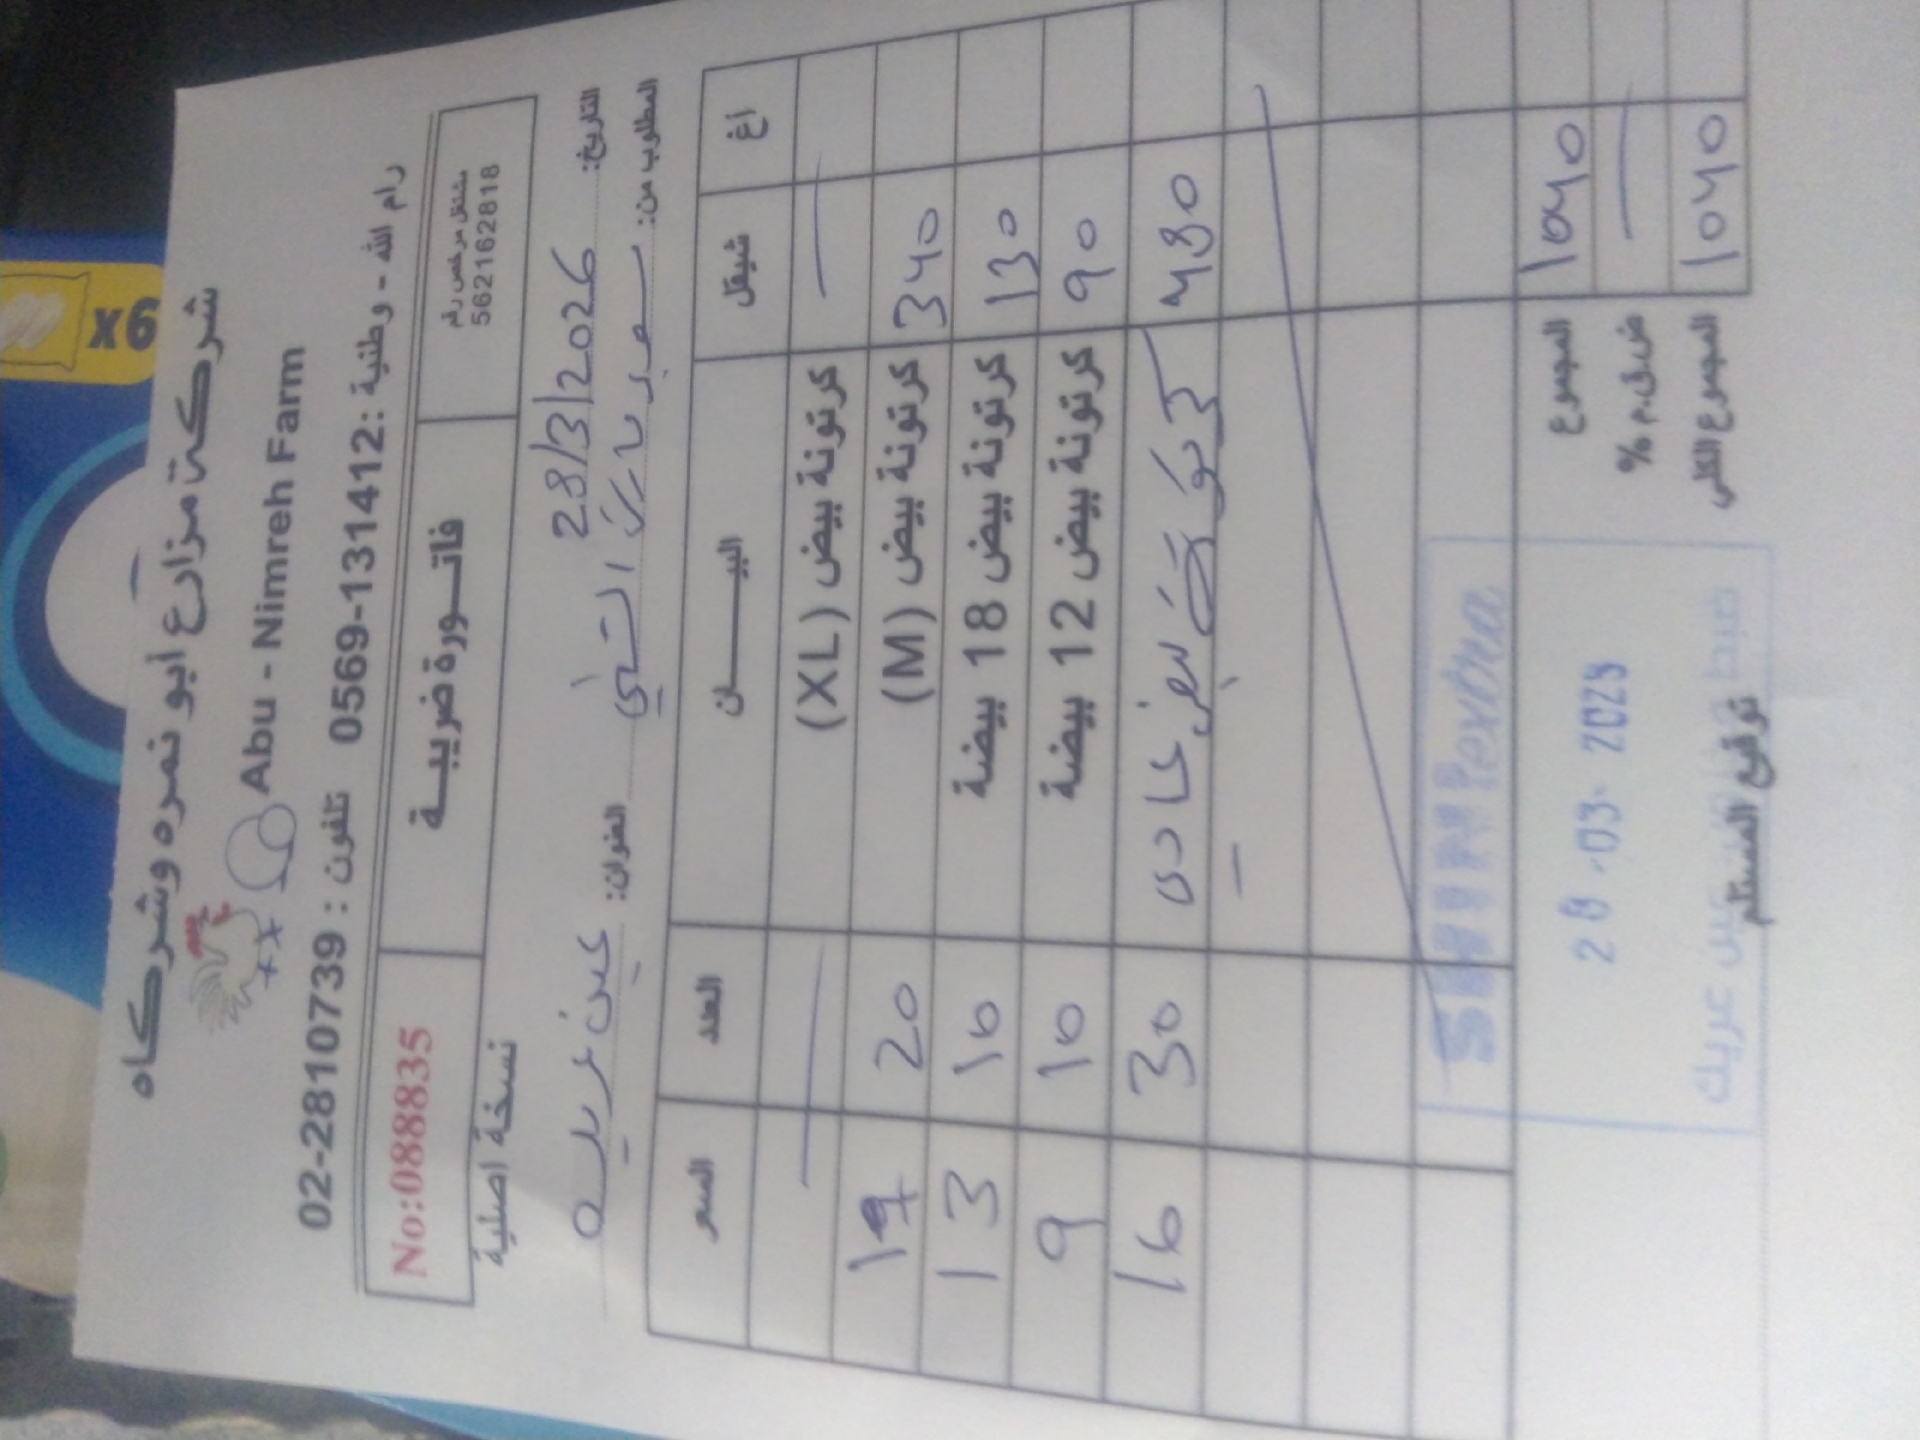 شركة مزارع ابو نمره وشركاه
Abu - Nimreh Farm
02-2810739 : تلفون 0569-131412: رام الله - وطنية
No:088835
فاتورة ضريبية
مشتغل مرخص رقم
562162818
نسخة اصلية
التاريخ: 28/3/2026
المطلوب من: سوبر ماركت
العنوان: عين عريك
السعر العدد البيــــــان شيقل اغ
كرتونة بيض (XL)
17 20 كرتونة بيض (M) 340
13 10 كرتونة بيض 18 بيضة 130
9 10 كرتونة بيض 12 بيضة 90
16 30 بيض عادي 480
المجموع 1040
ض.ق.م %
المجموع الكلي 1040
extra
عين عريك
توقيع المستلم
x6